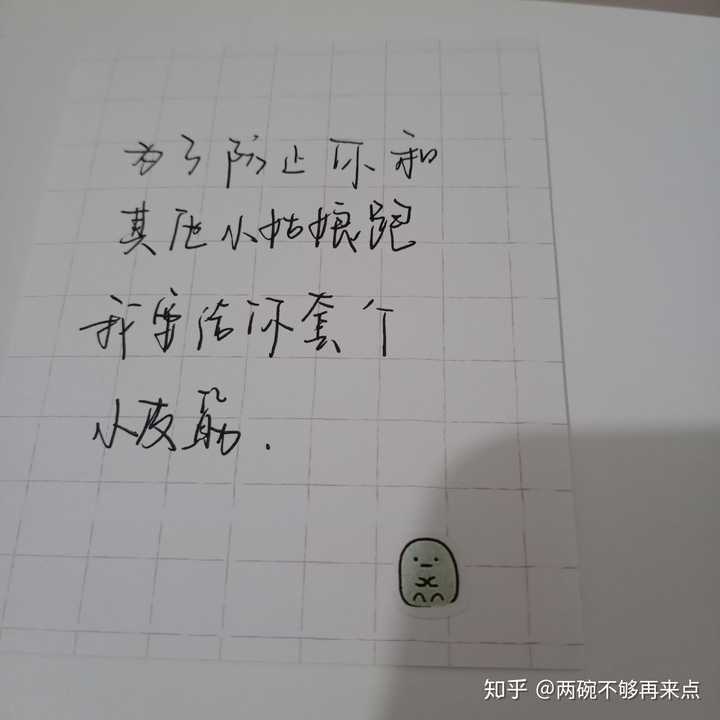 为了防止你和
其他小姑娘跑
我要给你套个
小皮筋.
知乎 @两碗不够再来点